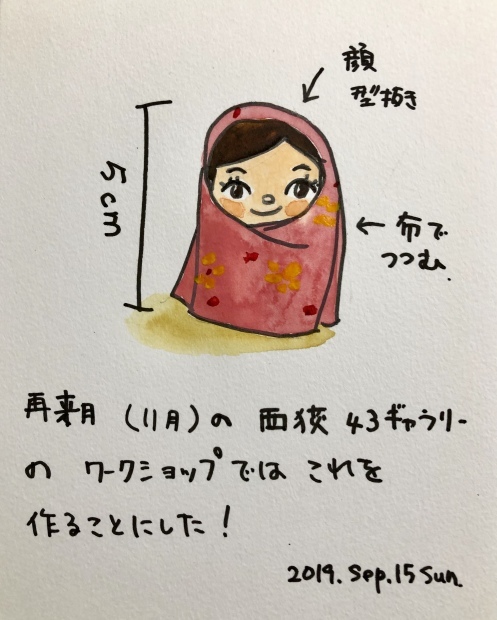 顔
型抜き
5cm
布で
つつむ.
再来月 (11月)の 西荻 43ギャラリー
の ワークショップでは これを
作ることにした!
2019. Sep. 15 Sun.